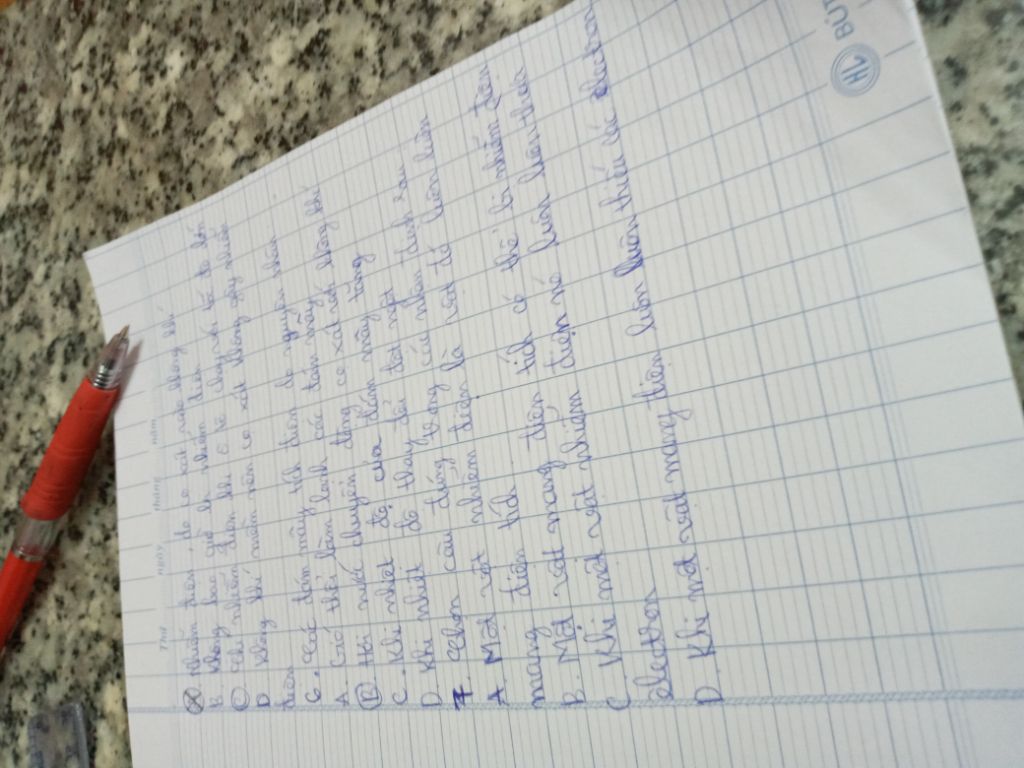 Thứ ngày tháng năm
A Nhiễm điện, do cọ xát với không khí
B. Không bao giờ bị nhiễm điện
C Chỉ nhiễm điện khi ô tô chạy với tốc độ lớn
D Không khí mềm nên cọ xát không gây nhiễm
điện
6. Các đám mây tích điện do nguyên nhân
A. Gió thổi làm lạnh các đám mây
B. Hơi nước chuyển động có xát với không khí
C. Khi nhiệt độ của đám mây tăng
D. Khi nhiệt độ thay đổi đột ngột
7. Chọn câu đúng trong các nhận định sau
A. Một vật nhiễm điện là vật đó luôn luôn
mang điện tích
B. Một vật mang điện tích có thể bị nhiễm điện
C. Khi một vật nhiễm điện nó luôn luôn thừa
electron
D. Khi một vật mang điện luôn luôn thiếu các electron
HL BÚT